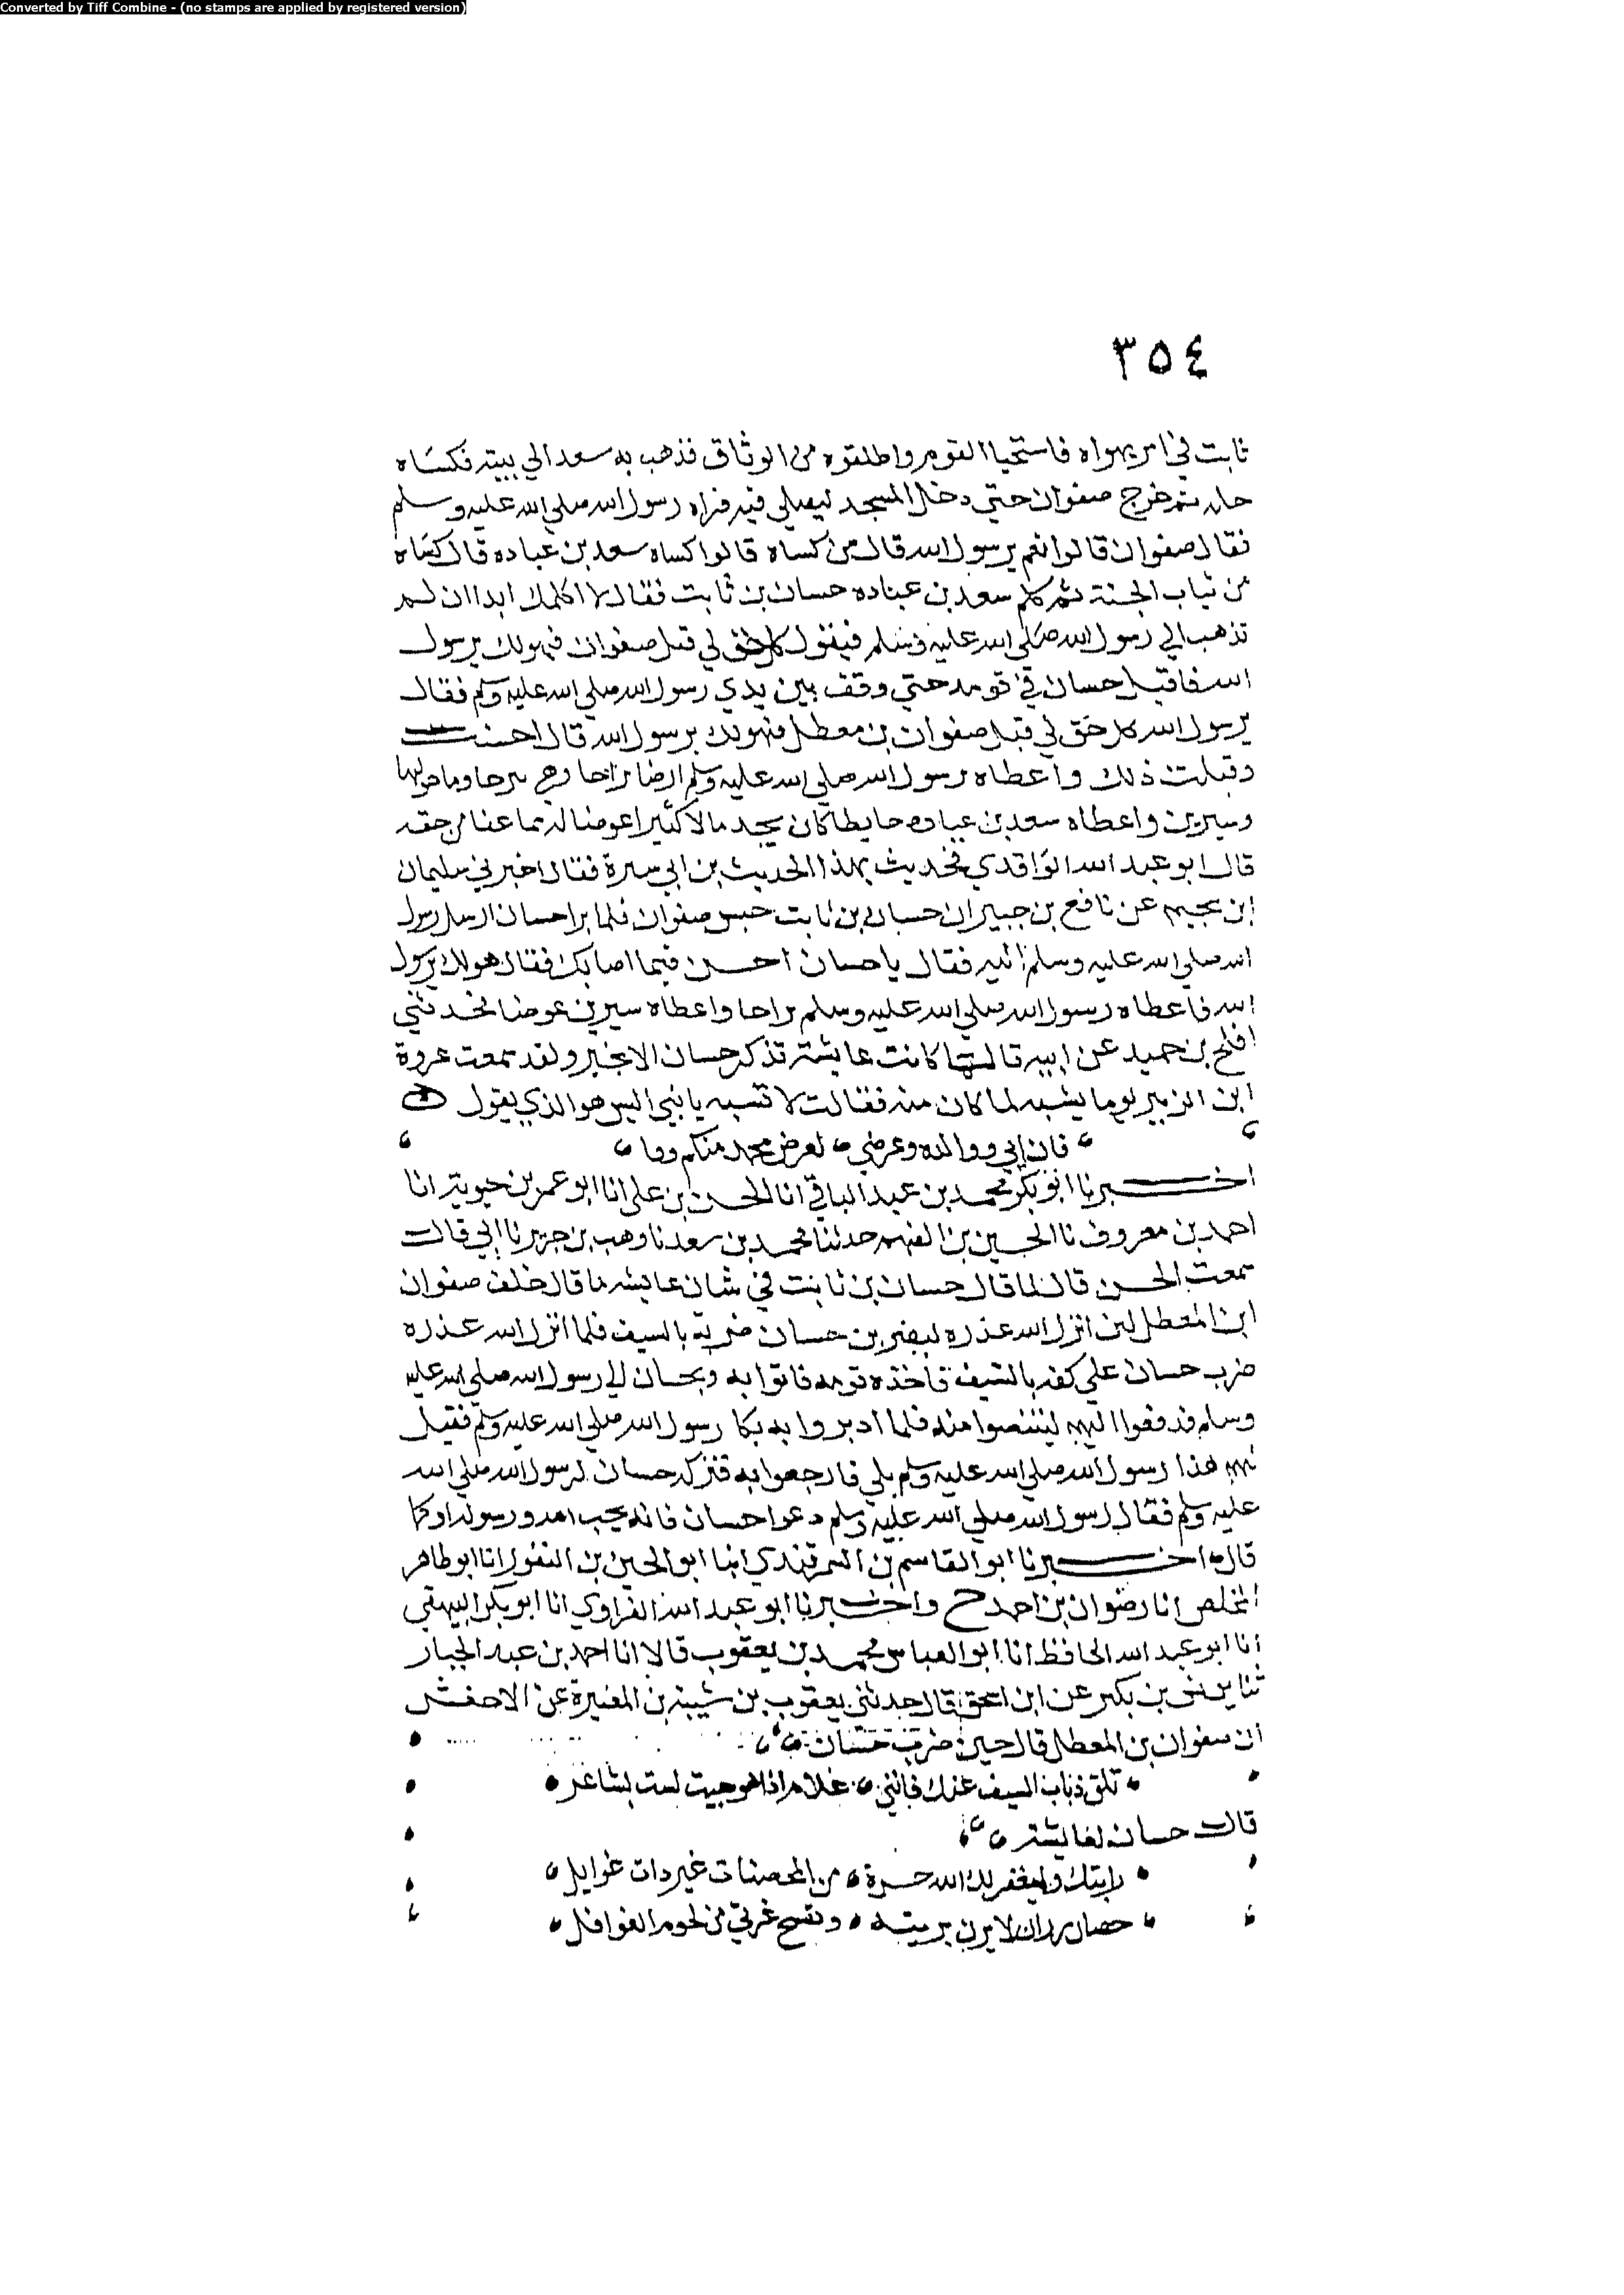 Converted by Tiff Combine - (no stamps are applied by registered version)
٣٥٤
ثابت في امر يهواه فاستحيا القوم واطلقوه من الوثاق فذهب به سعد الي بيته فكساه
حله ثم خرج صفوان حتي دخل المسجد ليصلي فيه فراه رسول الله صلي الله عليه وسلم
فقال صفوان قالوا نعم يرسول الله قال من كساه قالوا كساه سعد بن عباده قال كساه
من ثياب الجنة ثم كلم سعد بن عباده حسان بن ثابت فقال لا اكلمك ابدا ان لم
تذهب الي رسول الله صلي الله عليه وسلم فيقول كل حق لي قبل صفوان فهو لك يرسول
الله فاقبل حسان في قومه حتي وقف بين يدي رسول الله صلي الله عليه وسلم فقال
يرسول الله كل حق لي قبل صفوان بن معطل فهو لك يرسول الله قال احسنت
وقبلت ذلك واعطاه رسول الله صلي الله عليه وسلم ارضا براحا وهي بيرحا وما حولها
وسيرين واعطاه سعد بن عباده حايطا كان يجد مالا كثيرا عوضا له بما عفا من حقه
قال ابو عبد الله الواقدي فحديث بهذا الحديث بن ابي سبرة فقال اخبرني سليمان
ابن سحيم عن نافع بن جبير ان حسان بن ثابت حبس صفوان فلما برا حسان ارسل رسول
الله صلي الله عليه وسلم اليه فقال يا حسان احسن فيما اصابك فقال هو لك يرسول
الله فاعطاه رسول الله صلي الله عليه وسلم براحا واعطاه سيرين عوضا فحدثني
افلح بن حميد عن ابيه قال كانت عايشة تذكر حسان الا بخير ولقد سمعت عروة
ابن الزبير يوما يسبه لما كان منه فقالت لا تسبه يا بني اليس هو الذي يقول
فان ابي ووالده وعرضي لعرض محمد منكم وقا
اخبرنا ابو بكر محمد بن عبد الباقي انا الحسن بن علي انا ابو عمر بن حيوية انا
احمد بن معروف نا الحسين بن الفهم حدثنا محمد بن سعد نا وهب بن جرير نا ابي قال
سمعت الحسن قال لما قال حسان بن ثابت في شان عايشه ما قال خلف صفوان
ابن المعطل لين انزل الله عذره ليضربن حسان ضربة بالسيف فلما انزل الله عذره
ضرب حسان علي كفه بالسيف فاخذه قومه فاتوا به وبحسان الي رسول الله صلي الله عليه
وسلم فدفعوا اليهم ليقتصوا منه فلما ادبروا به بكا رسول الله صلي الله عليه وسلم فقيل
لهم هذا رسول الله صلي الله عليه وسلم بكي فارجعوا به فتركه حسان لرسول الله صلي الله
عليه وسلم فقال رسول الله صلي الله عليه وسلم دعوا حسان فانه يحب الله ورسوله او كما
قال اخبرنا ابو القاسم بن السمرقندي انبا ابو الحسين بن النقور انا ابو طاهر
المخلص انا رضوان بن احمد ح واخبرنا ابو عبد الله الفراوي انا ابو بكر البيهقي
انا ابو عبد الله الحافظ انا ابو العباس محمد بن يعقوب قالا انا احمد بن عبد الجبار
ثنا يونس بن بكير عن ابن اسحق قال حدثني يعقوب بن شيبه بن المغيرة عن الاخفش
ان سفوان بن المعطل قال حين ضرب حسان
تلق ذباب السيف عنك فانني غلام اذا هوجيت لست بشاعر
قال حسان لعايشة
رايتك وليغفر لك الله حرة من المحصنات غير ذات غوايل
حصان رزان لا يزن بريبة وتصبح غرثي من لحوم الغوافل